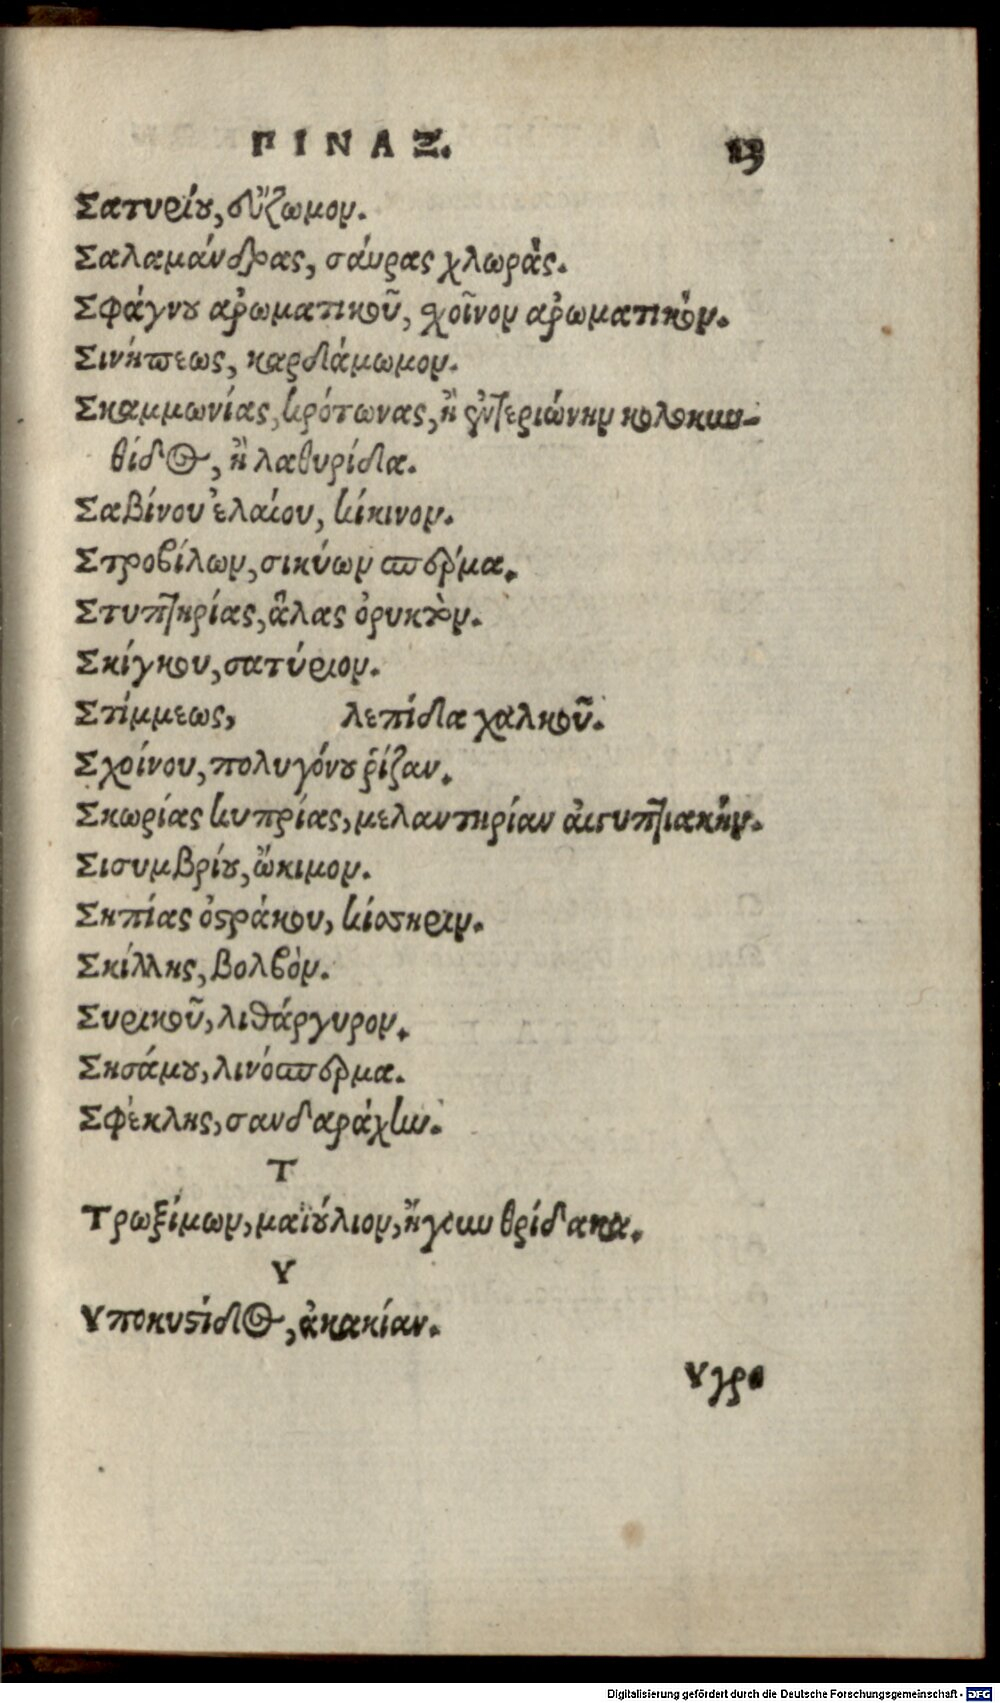 ΠΙΝΑΞ. 13
Σατυρίου, εὔζωμον.
Σαλαμάνδρας, σάυρας χλωρὰς.
Σφάγνου ἀρωματικοῦ, χοῖνον ἀρωματικόν.
Σινήπεως, καρδάμωμον.
Σκαμμωνίας, κρότωνας, ἢ ἐντεριώνην κολοκυν-
θίδος, ἢ λαθυρίδα.
Σαβίνου ἐλαίου, κίκινον.
Στροβίλων, σικύων σπέρμα.
Στυπτηρίας, ἅλας ὀρυκτὸν.
Σκίγκου, σατύριον.
Στίμμεως, λεπίδα χαλκοῦ.
Σχοίνου, πολυγόνου ῥίζαν.
Σκωρίας κυπρίας, μελαντηρίαν ἀιγυπτιακήν.
Σισυμβρίου, ὤκιμον.
Σηπίας ὀστράκου, κίσσηριν.
Σκίλλης, βολβὸν.
Συρικοῦ, λιθάργυρον.
Σησάμου, λινόσπερμα.
Σφέκλης, σανδαράχην.
Τ
Τρωξίμων, μαϊούλιον, ἤγουν θρίδακα.
Υ
Υποκυστίδος, ἀκακίαν.
Υγρο
Digitalisierung gefördert durch die Deutsche Forschungsgemeinschaft - DFG